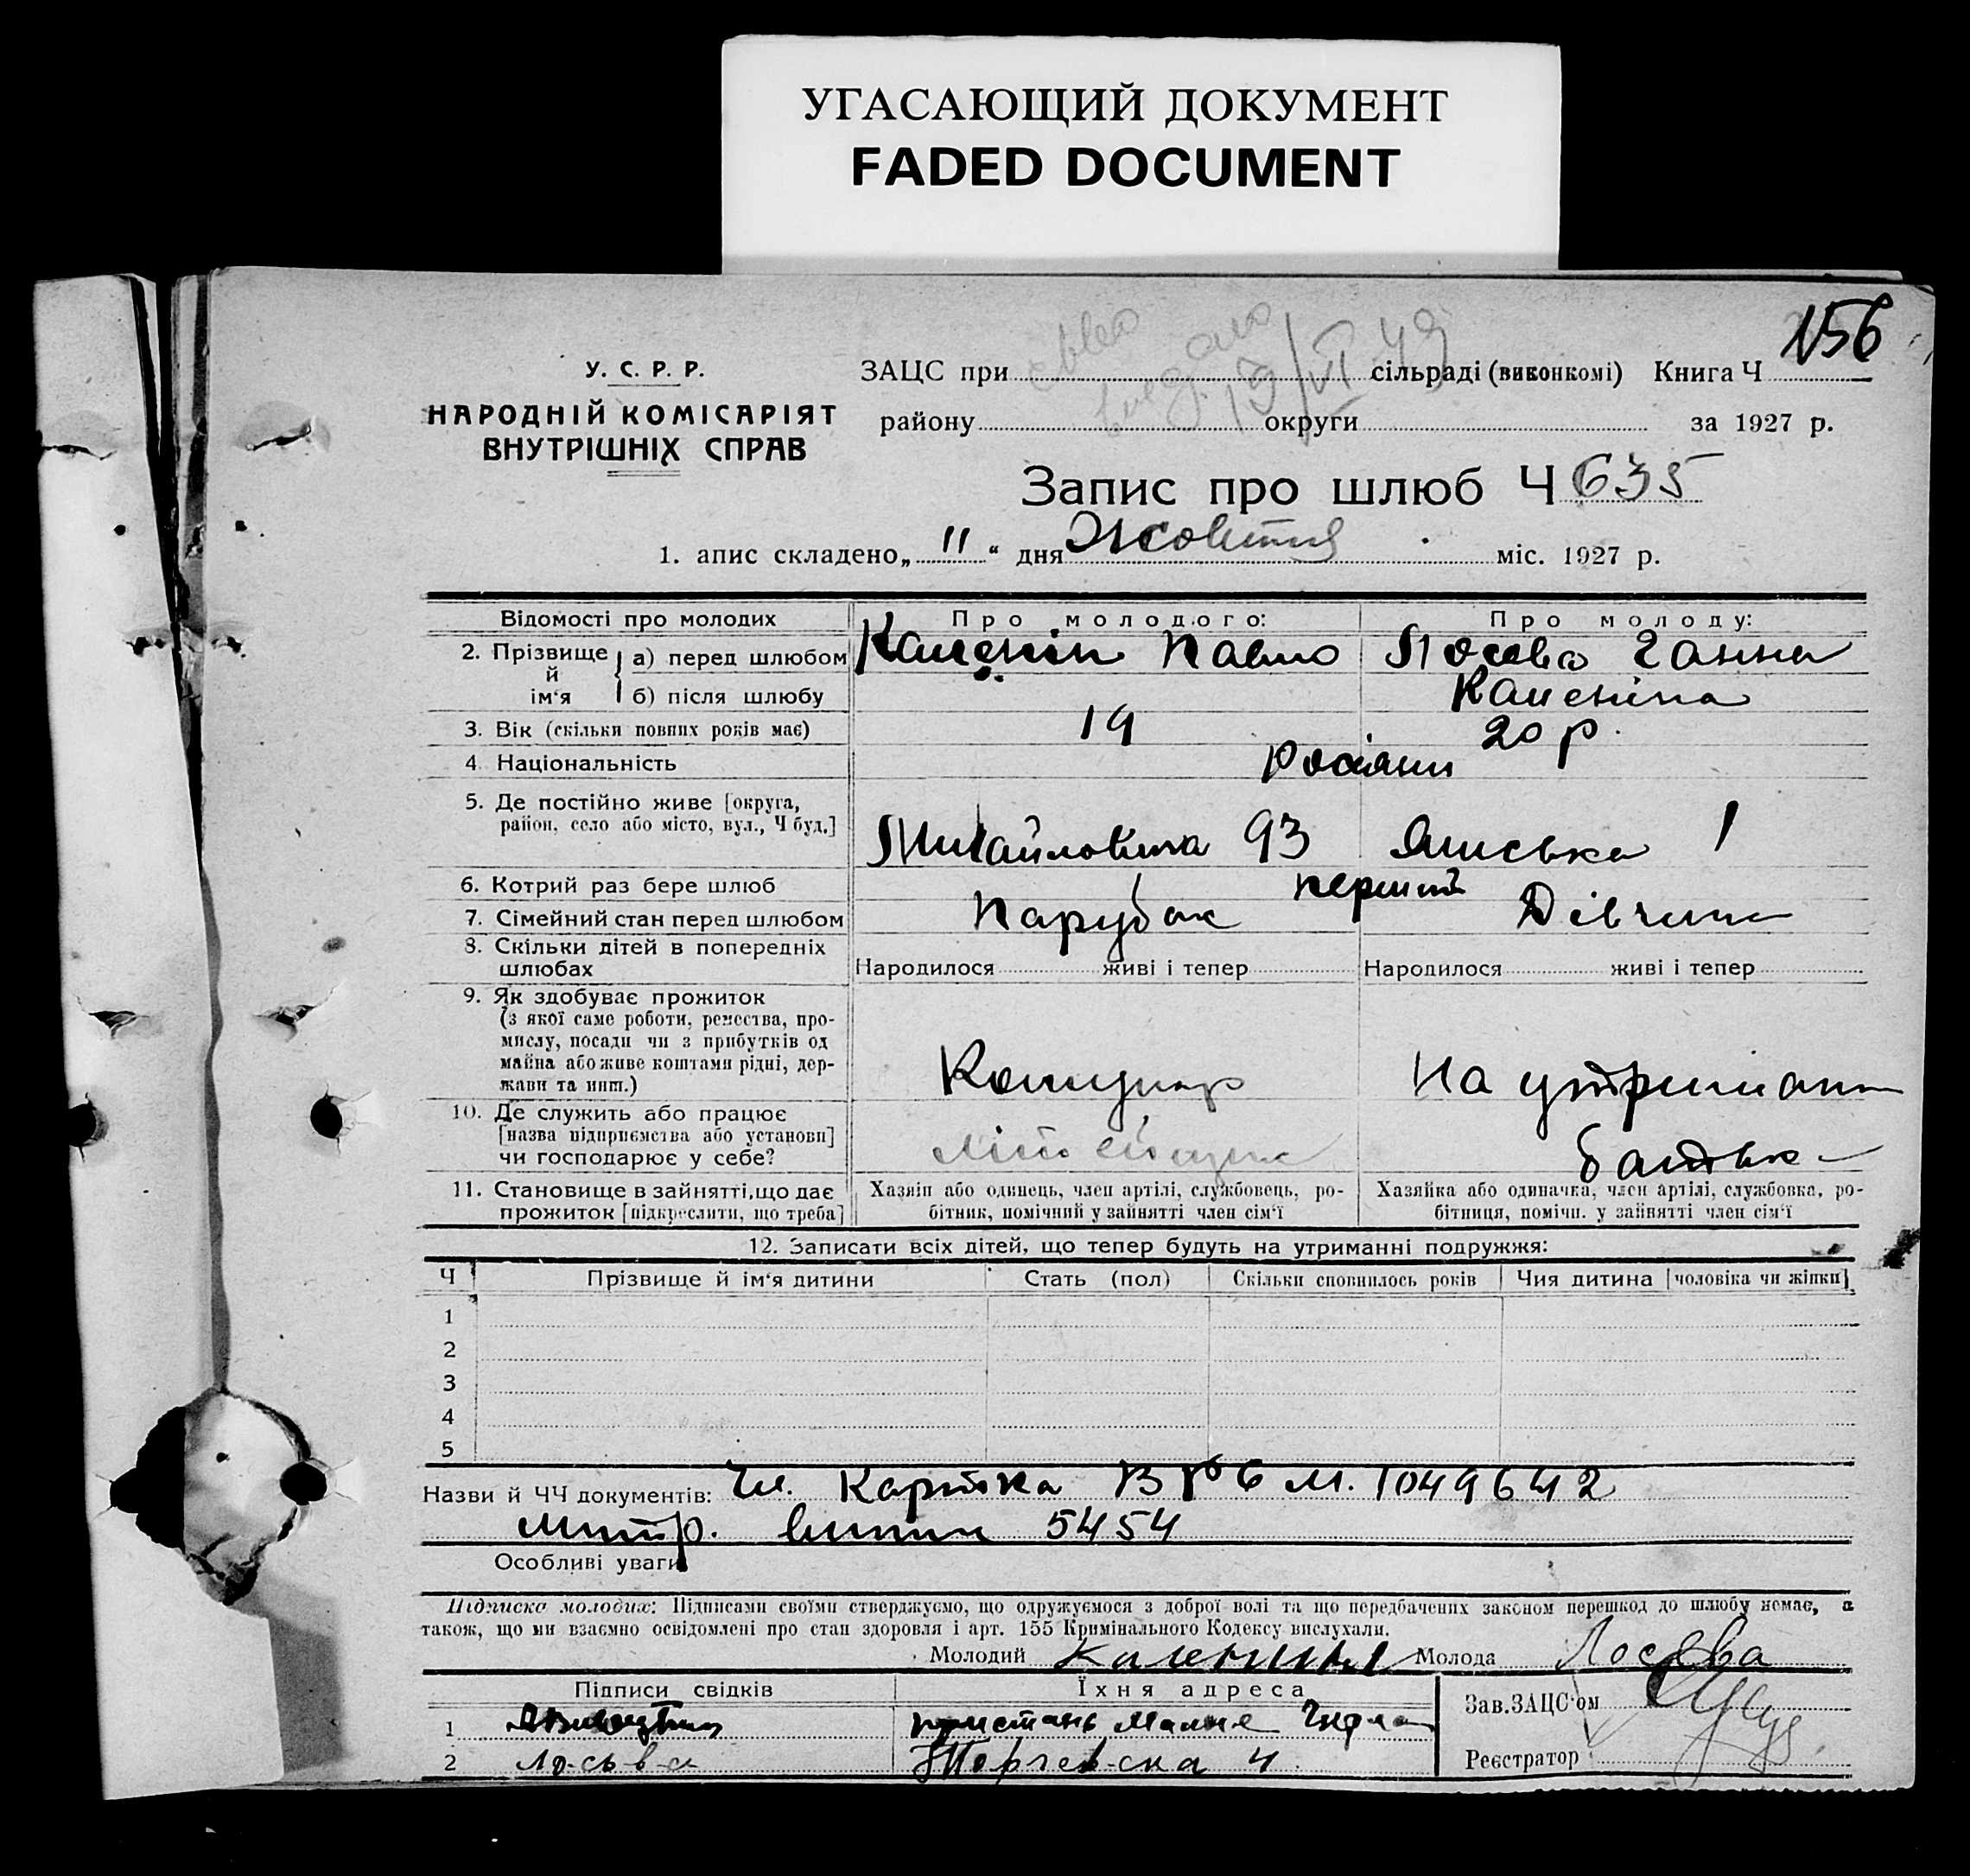 УГАСАЮЩИЙ ДОКУМЕНТ
FADED DOCUMENT
156
У. С. Р. Р.
НАРОДНІЙ КОМІСАРІЯТ
ВНУТРІШНІХ СПРАВ
ЗАЦС при сільраді (виконкомі) Книга Ч
району округи за 1927 р.
19/VI 49
Запис про шлюб Ч 635
1. апис складено „ 11 “ дня Жовтня міс. 1927 р.
Відомості про молодих Про молодого: Про молоду:
2. Прізвище й ім‘я а) перед шлюбом Каленін Павло Лосєва Ганна
б) після шлюбу Каленіна
3. Вік (скільки повних років має) 19 20 р.
4. Національність Росіяни
5. Де постійно живе [округа,
район, село або місто, вул., Ч буд.] 93 1
6. Котрий раз бере шлюб перший
7. Сімейний стан перед шлюбом Парубок Дівчина
8. Скільки дітей в попередніх
шлюбах Народилося живі і тепер Народилося живі і тепер
9. Як здобуває прожиток
(з якої саме роботи, ремества, про-
мислу, посади чи з прибутків од
майна або живе коштами рідні, дер-
жави та инш.) На утриманні
10. Де служить або працює
[назва підприємства або установи]
чи господарює у себе? батька
11. Становище в зайнятті, що дає
прожиток [підкреслити, що треба]
Хазяїн або одинець, член артілі, службовець, ро-
бітник, помічний у зайнятті член сім‘ї
Хазяйка або одиначка, член артілі, службовка, ро-
бітниця, помічн. у зайнятті член сім‘ї
12. Записати всіх дітей, що тепер будуть на утриманні подружжя:
Ч Прізвище й ім‘я дитини Стать (пол) Скільки сповнилось років Чия дитина [чоловіка чи жінки]
1
2
3
4
5
Назви й ЧЧ документів: Чл. Картка 1049642
метр. 5454
Особливі уваги
Підписка молодих: Підписами своїми стверджуємо, що одружуємося з доброї волі та що передбачених законом перешкод до шлюбу немає, а
також, що ми взаємно освідомлені про стан здоровля і арт. 155 Кримінального Кодексу вислухали.
Молодий Каленин Молода Лосева
Підписи свідків Їхня адреса
1
2 4
Зав.ЗАЦС‘ом
Реєстратор